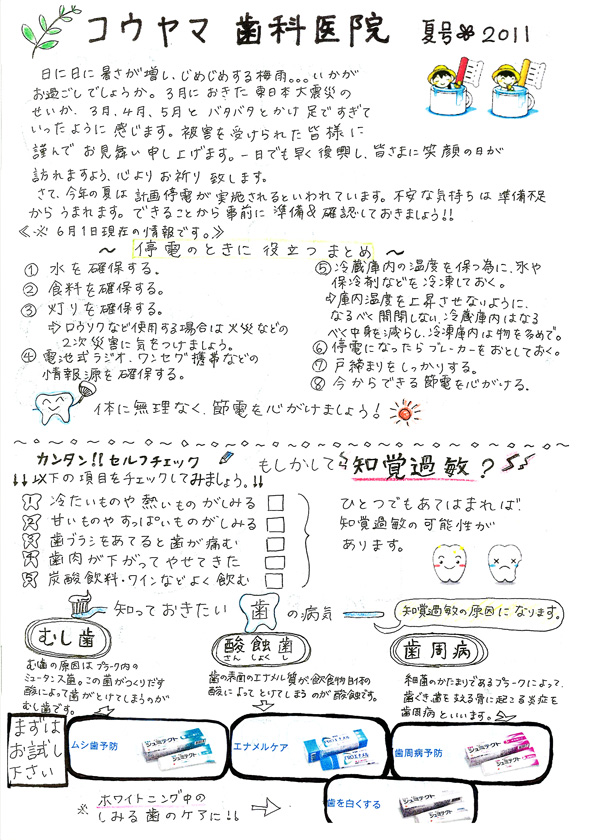 コウヤマ 歯科医院 夏号 2011
日に日に暑さが増し、じめじめする梅雨。。。いかが
お過ごしでしょうか。3月におきた東日本大震災の
せいか、3月、4月、5月と バタバタとかけ足ですぎて
いったように感じます。被害を受けられた皆様に
謹んでお見舞い申し上げます。一日でも早く復興し、皆さまに笑顔の日が
訪れますよう、心よりお祈り致します。
さて、今年の夏は計画停電が実施されるといわれています。不安な気持ちは準備不足
からうまれます。できることから事前に準備&確認しておきましょう!!
《※6月1日現在の情報です。》
〜 停電のときに役立つまとめ 〜
① 水を確保する。
② 食料を確保する。
③ 灯りを確保する。
⇨ロウソクなど使用する場合は火災などの
2次災害に気をつけましょう。
④ 電池式ラジオ、ワンセグ携帯などの
情報源を確保する。
⑤冷蔵庫内の温度を保つ為に、氷や
保冷剤などを冷凍しておく。
⇨庫内温度を上昇させないように、
なるべく開閉しない、冷蔵庫内はなる
べく中身を減らし、冷凍庫内は物を多めで。
⑥ 停電になったらブレーカーをおとしておく。
⑦ 戸締まりをしっかりする。
⑧ 今からできる節電を心がける。
体に無理なく、節電を心がけましょう!
カンタン!! セルフチェック
↓↓以下の項目をチェックしてみましょう。↓↓
1 冷たいものや熱いものがしみる □
2 甘いものやすっぱいものがしみる □
3 歯ブラシをあてると歯が痛む □
4 歯肉が下がってやせてきた □
5 炭酸飲料・ワインなどよく飲む □
もしかして 知覚過敏?
ひとつでもあてはまれば、
知覚過敏の可能性が
あります。
知っておきたい 歯 の病気
知覚過敏の原因になります。
むし歯
むし歯の原因はプラーク内の
ミュータンス菌。この菌がつくりだす
酸によって歯がとけてしまうのが
むし歯です。
酸蝕歯
さんしょくし
歯の表面のエナメル質が飲食物自体の
酸によってとけてしまうのが酸蝕です。
歯周病
細菌のかたまりであるプラークによって、
歯ぐきや歯を支える骨に起こる炎症を
歯周病といいます。
まずは
お試し
下さい
ムシ歯予防
シュミテクト
エナメルケア
歯周病予防
シュミテクト
※ ホワイトニング中の
しみる歯のケアに!!
歯を白くする
シュミテクト